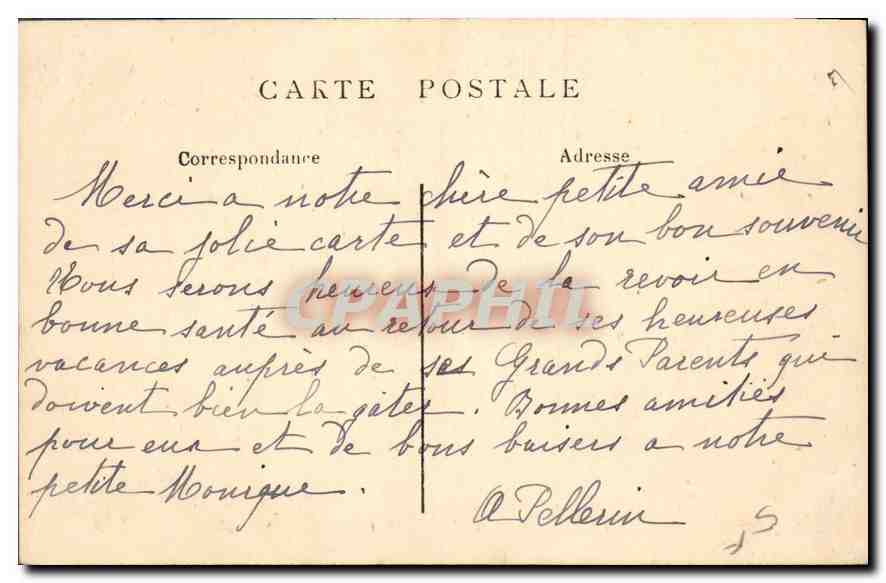 CARTE POSTALE
Correspondance Adresse
Merci a notre chère petite amie
de sa jolie carte et de son bon souvenir
Nous serons heureux de la revoir en
bonne santé au retour de ses heureuses
vacances auprès de ses Grands Parents qui
doivent bien la gâter. Bonnes amitiés
pour eux et de bons baisers a notre
petite Monique.
A Pellerin
CPAPHIL